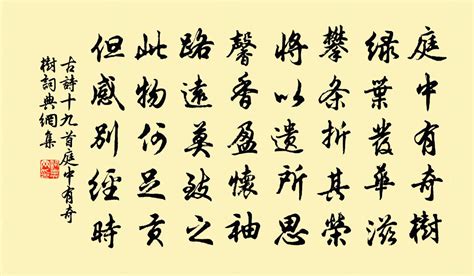 庭中有奇樹
绿葉發華滋
攀条折其榮
將以遺所思
馨香盈懷袖
路遠莫致之
此物何足贡
但感别經時
古詩十九首庭中有奇
樹詞典網集